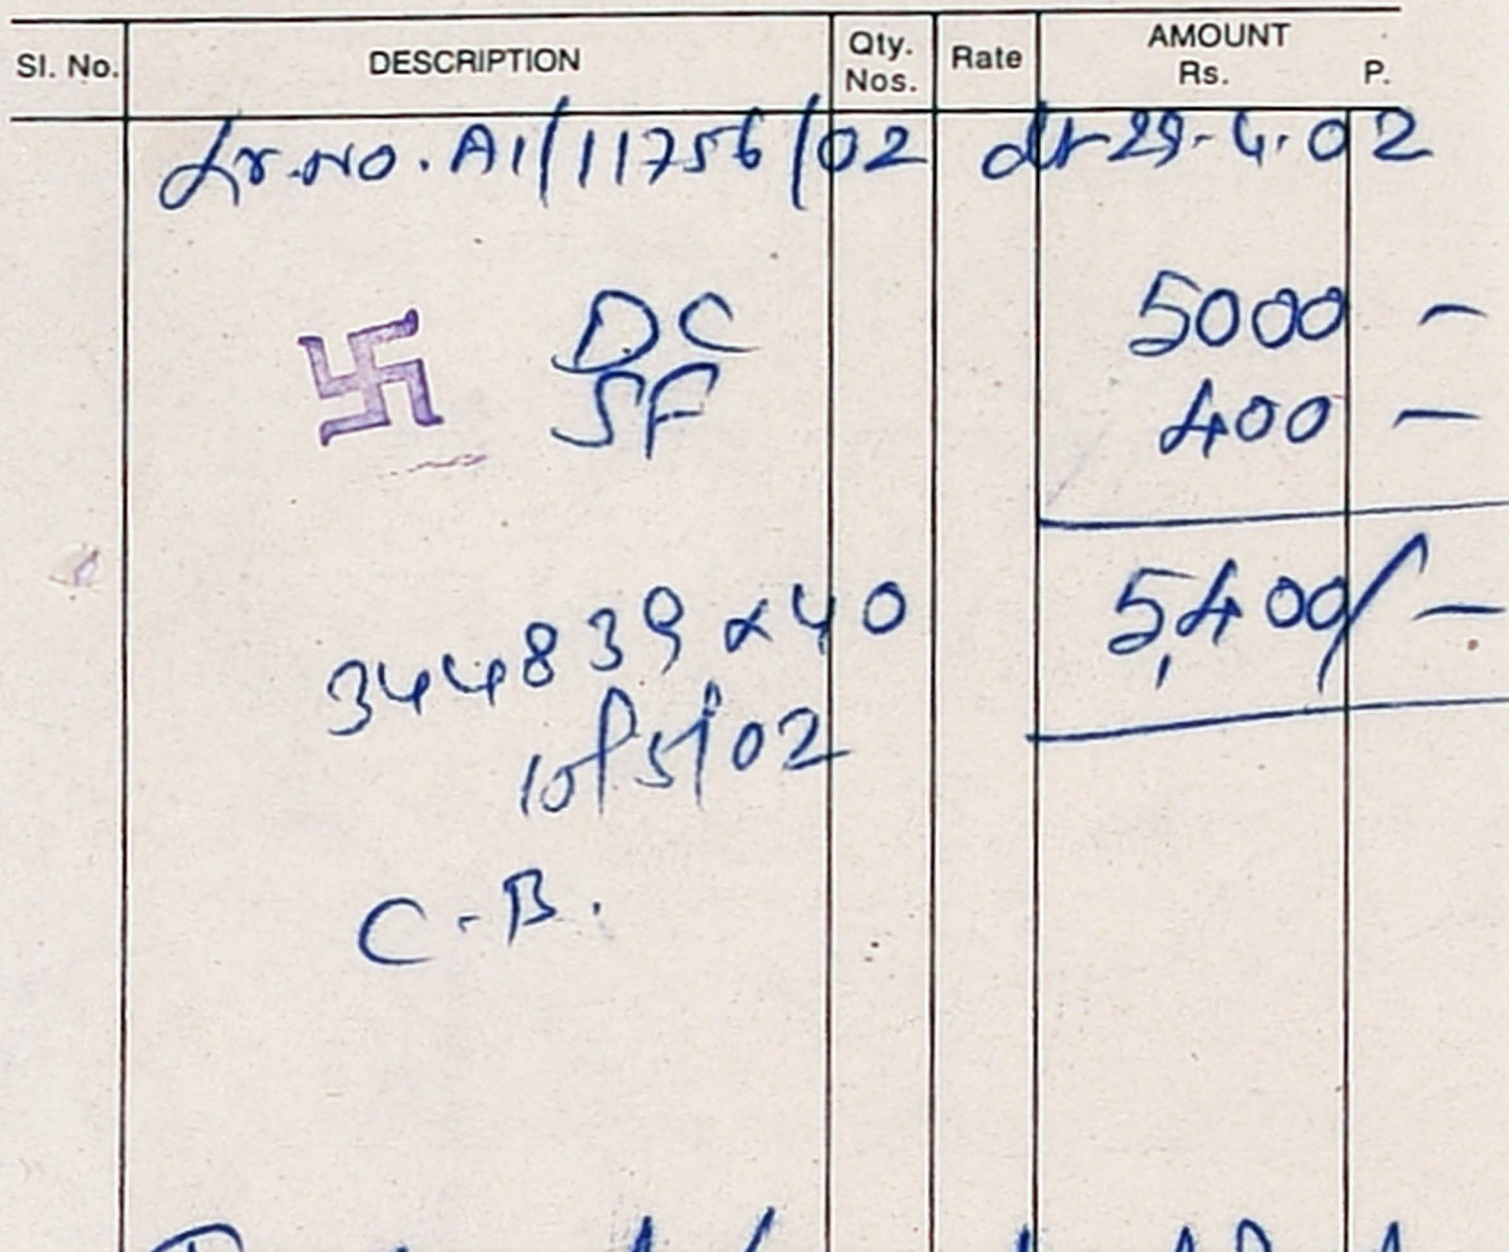 Sl. No. DESCRIPTION Qty. Nos. Rate AMOUNT Rs. P.
Lr.No. A1/11756/02 dt 29.4.02
DC 5000 —
SF 400 —
5,400/—
344839 & 40
10/5/02
C-B.